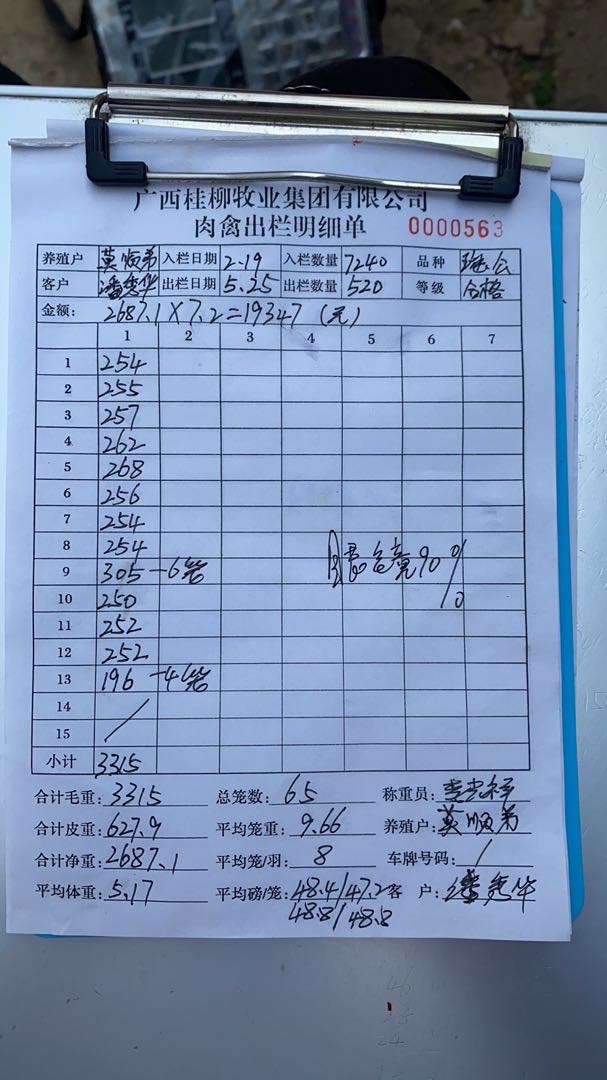 广西桂柳牧业集团有限公司
肉禽出栏明细单 0000563
养殖户 莫顺弟 入栏日期 2.19 入栏数量 7240 品种
客户 潘秀华 出栏日期 5.25 出栏数量 520 等级 合格
金额: 2687.1×7.2=19347 (元)
1 2 3 4 5 6 7
1 254
2 255
3 257
4 262
5 268
6 256
7 254
8 254
9 305 -6笼 90%
10 250
11 252
12 252
13 196 -4笼
14
15
小计 3315
合计毛重: 3315 总笼数: 65 称重员:
合计皮重: 627.9 平均笼重: 9.66 养殖户: 莫顺弟
合计净重: 2687.1 平均笼/羽: 8 车牌号码: /
平均体重: 5.17 平均磅/笼: 48.4/47.2 客 户: 潘秀华
48.8/48.8